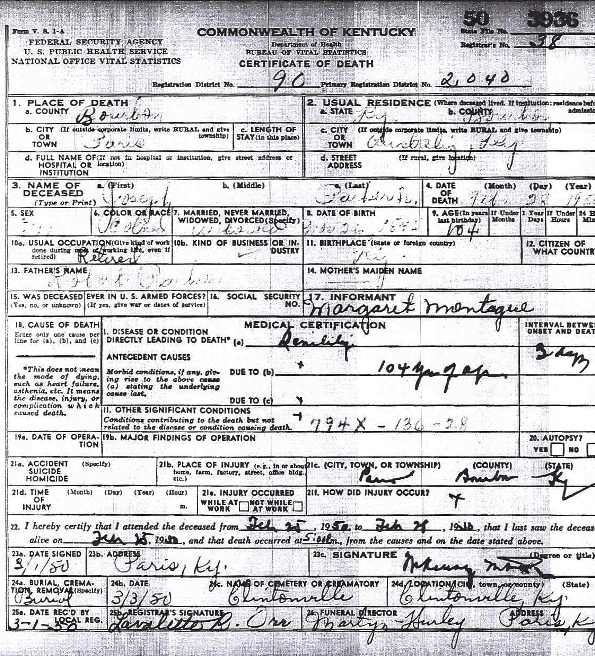 50 3936
Form V. S. 1-A
COMMONWEALTH OF KENTUCKY
State File No.
FEDERAL SECURITY AGENCY
Department of Health
Registrar's No. 38
U. S. PUBLIC HEALTH SERVICE
BUREAU OF VITAL STATISTICS
NATIONAL OFFICE VITAL STATISTICS
CERTIFICATE OF DEATH
Registration District No. 90 Primary Registration District No. 2040
1. PLACE OF DEATH
a. COUNTY Bourbon
2. USUAL RESIDENCE (Where deceased lived. If institution: residence before
a. STATE Ky. b. COUNTY Bourbon
b. CITY (If outside corporate limits, write RURAL and give township)
OR TOWN Paris
c. LENGTH OF STAY (in this place)
c. CITY (If outside corporate limits, write RURAL and give township)
OR TOWN
d. FULL NAME OF (If not in hospital or institution, give street address or location)
HOSPITAL OR INSTITUTION
d. STREET ADDRESS (If rural, give location)
3. NAME OF DECEASED (Type or Print)
a. (First) Joseph
b. (Middle)
c. (Last)
4. DATE OF DEATH (Month) (Day) (Year)
5. SEX
6. COLOR OR RACE
7. MARRIED, NEVER MARRIED, WIDOWED, DIVORCED (Specify)
8. DATE OF BIRTH
9. AGE (In years last birthday) 104
If Under 1 Year Months Days
If Under 24 Hours Min.
10a. USUAL OCCUPATION (Give kind of work done during most of working life, even if retired) Retired
10b. KIND OF BUSINESS OR INDUSTRY
11. BIRTHPLACE (State or foreign country) Ky.
12. CITIZEN OF WHAT COUNTRY
13. FATHER'S NAME
14. MOTHER'S MAIDEN NAME
15. WAS DECEASED EVER IN U. S. ARMED FORCES?
(Yes, no, or unknown) (If yes, give war or dates of service)
16. SOCIAL SECURITY NO.
17. INFORMANT
Margaret Montague
18. CAUSE OF DEATH
Enter only one cause per line for (a), (b), and (c)
MEDICAL CERTIFICATION
INTERVAL BETWEEN ONSET AND DEATH
I. DISEASE OR CONDITION DIRECTLY LEADING TO DEATH* (a) Senility
3 days
*This does not mean the mode of dying, such as heart failure, asthenia, etc. It means the disease, injury, or complication which caused death.
ANTECEDENT CAUSES
Morbid conditions, if any, giving rise to the above cause (a) stating the underlying cause last.
DUE TO (b) 104 yrs of age
DUE TO (c)
II. OTHER SIGNIFICANT CONDITIONS
Conditions contributing to the death but not related to the disease or condition causing death.
794X - 136 - 28
19a. DATE OF OPERATION
19b. MAJOR FINDINGS OF OPERATION
20. AUTOPSY?
YES NO
21a. ACCIDENT SUICIDE HOMICIDE (Specify)
21b. PLACE OF INJURY (e.g., in or about home, farm, factory, street, office bldg., etc.)
21c. (CITY, TOWN, OR TOWNSHIP) (COUNTY) (STATE)
Paris Bourbon Ky
21d. TIME OF INJURY (Month) (Day) (Year) (Hour) m.
21e. INJURY OCCURRED
WHILE AT WORK NOT WHILE AT WORK
21f. HOW DID INJURY OCCUR?
22. I hereby certify that I attended the deceased from Feb 25, 1950, to Feb 28, 1950, that I last saw the deceased
alive on Feb 25, 1950, and that death occurred at 5:00 m., from the causes and on the date stated above.
23a. DATE SIGNED 3/1/50
23b. ADDRESS Paris, Ky.
23c. SIGNATURE (Degree or title)
24a. BURIAL, CREMATION, REMOVAL (Specify) Burial
24b. DATE 3/3/50
24c. NAME OF CEMETERY OR CREMATORY Clintonville
24d. LOCATION (City, town, or county) (State) Clintonville, Ky.
25a. DATE REC'D BY LOCAL REG. 3-1-50
25b. REGISTRAR'S SIGNATURE Lavaletta K. Orr
26. FUNERAL DIRECTOR Martyn-Hurley
ADDRESS Paris, Ky